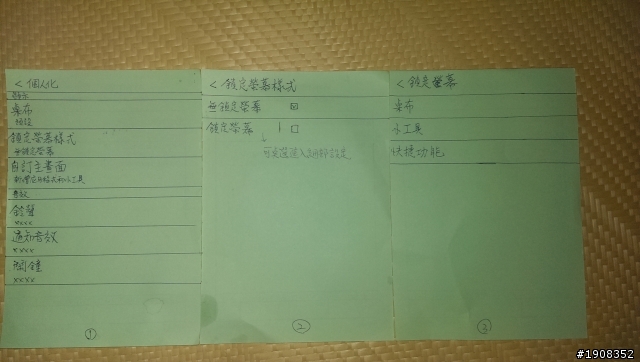 < 個人化
顯示
桌布
預設
鎖定螢幕樣式
無鎖定螢幕
自訂主畫面
新增应用程式和小工具
音效
鈴聲
xxxx
通知音效
xxxx
鬧鐘
xxxx
①
< 鎖定螢幕樣式
無鎖定螢幕 ☑
鎖定螢幕 | ☐
↓
可點選進入細部設定
②
< 鎖定螢幕
桌布
小工具
快捷功能
③
#1908352